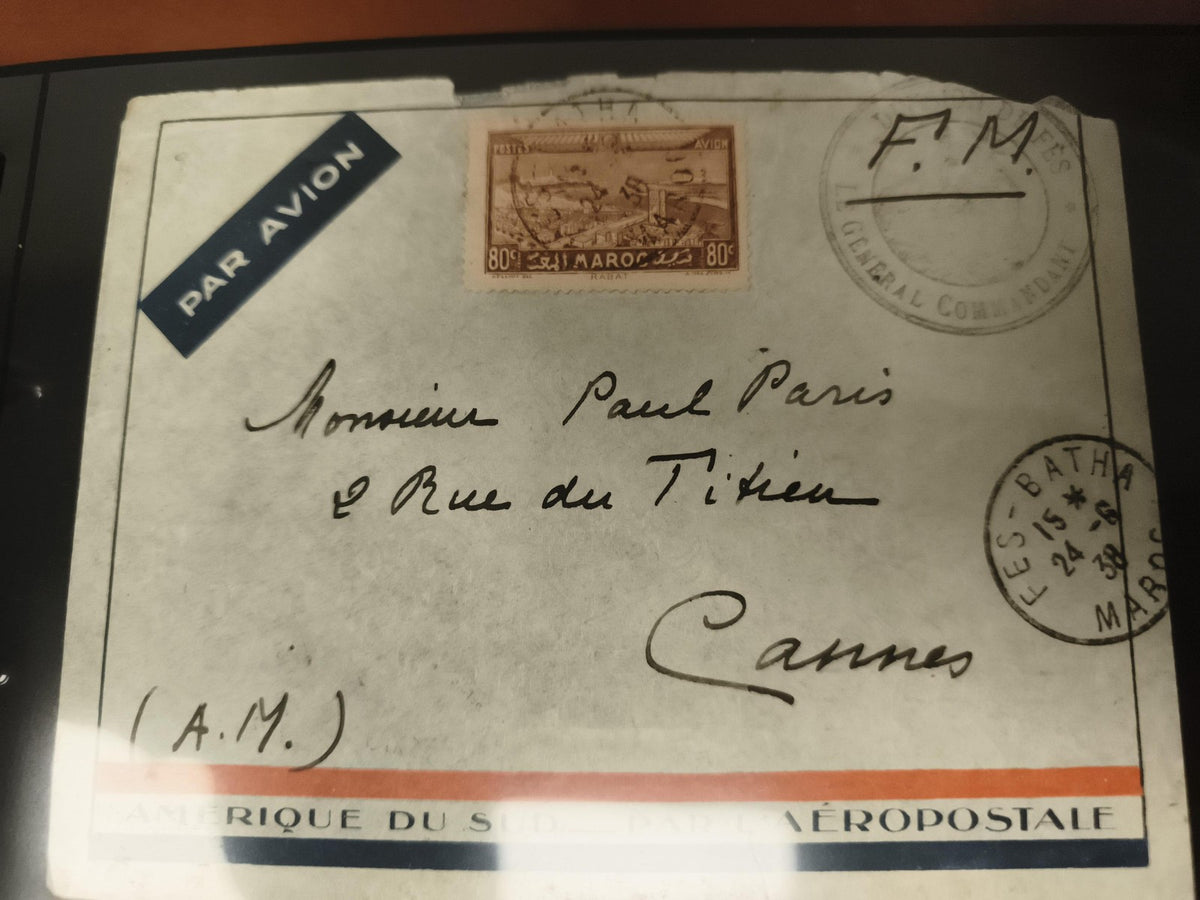 PAR AVION
POSTES AVION
80c MAROC المغرب 80c
RABAT
F.M.
FES
LE GENERAL COMMANDANT
BATHA
Monsieur Paul Paris
2 Rue du Titien
Cannes
FES-BATHA
15 *
24 -8
38
MAROC
(A.M.)
AMERIQUE DU SUD PAR L'AÉROPOSTALE